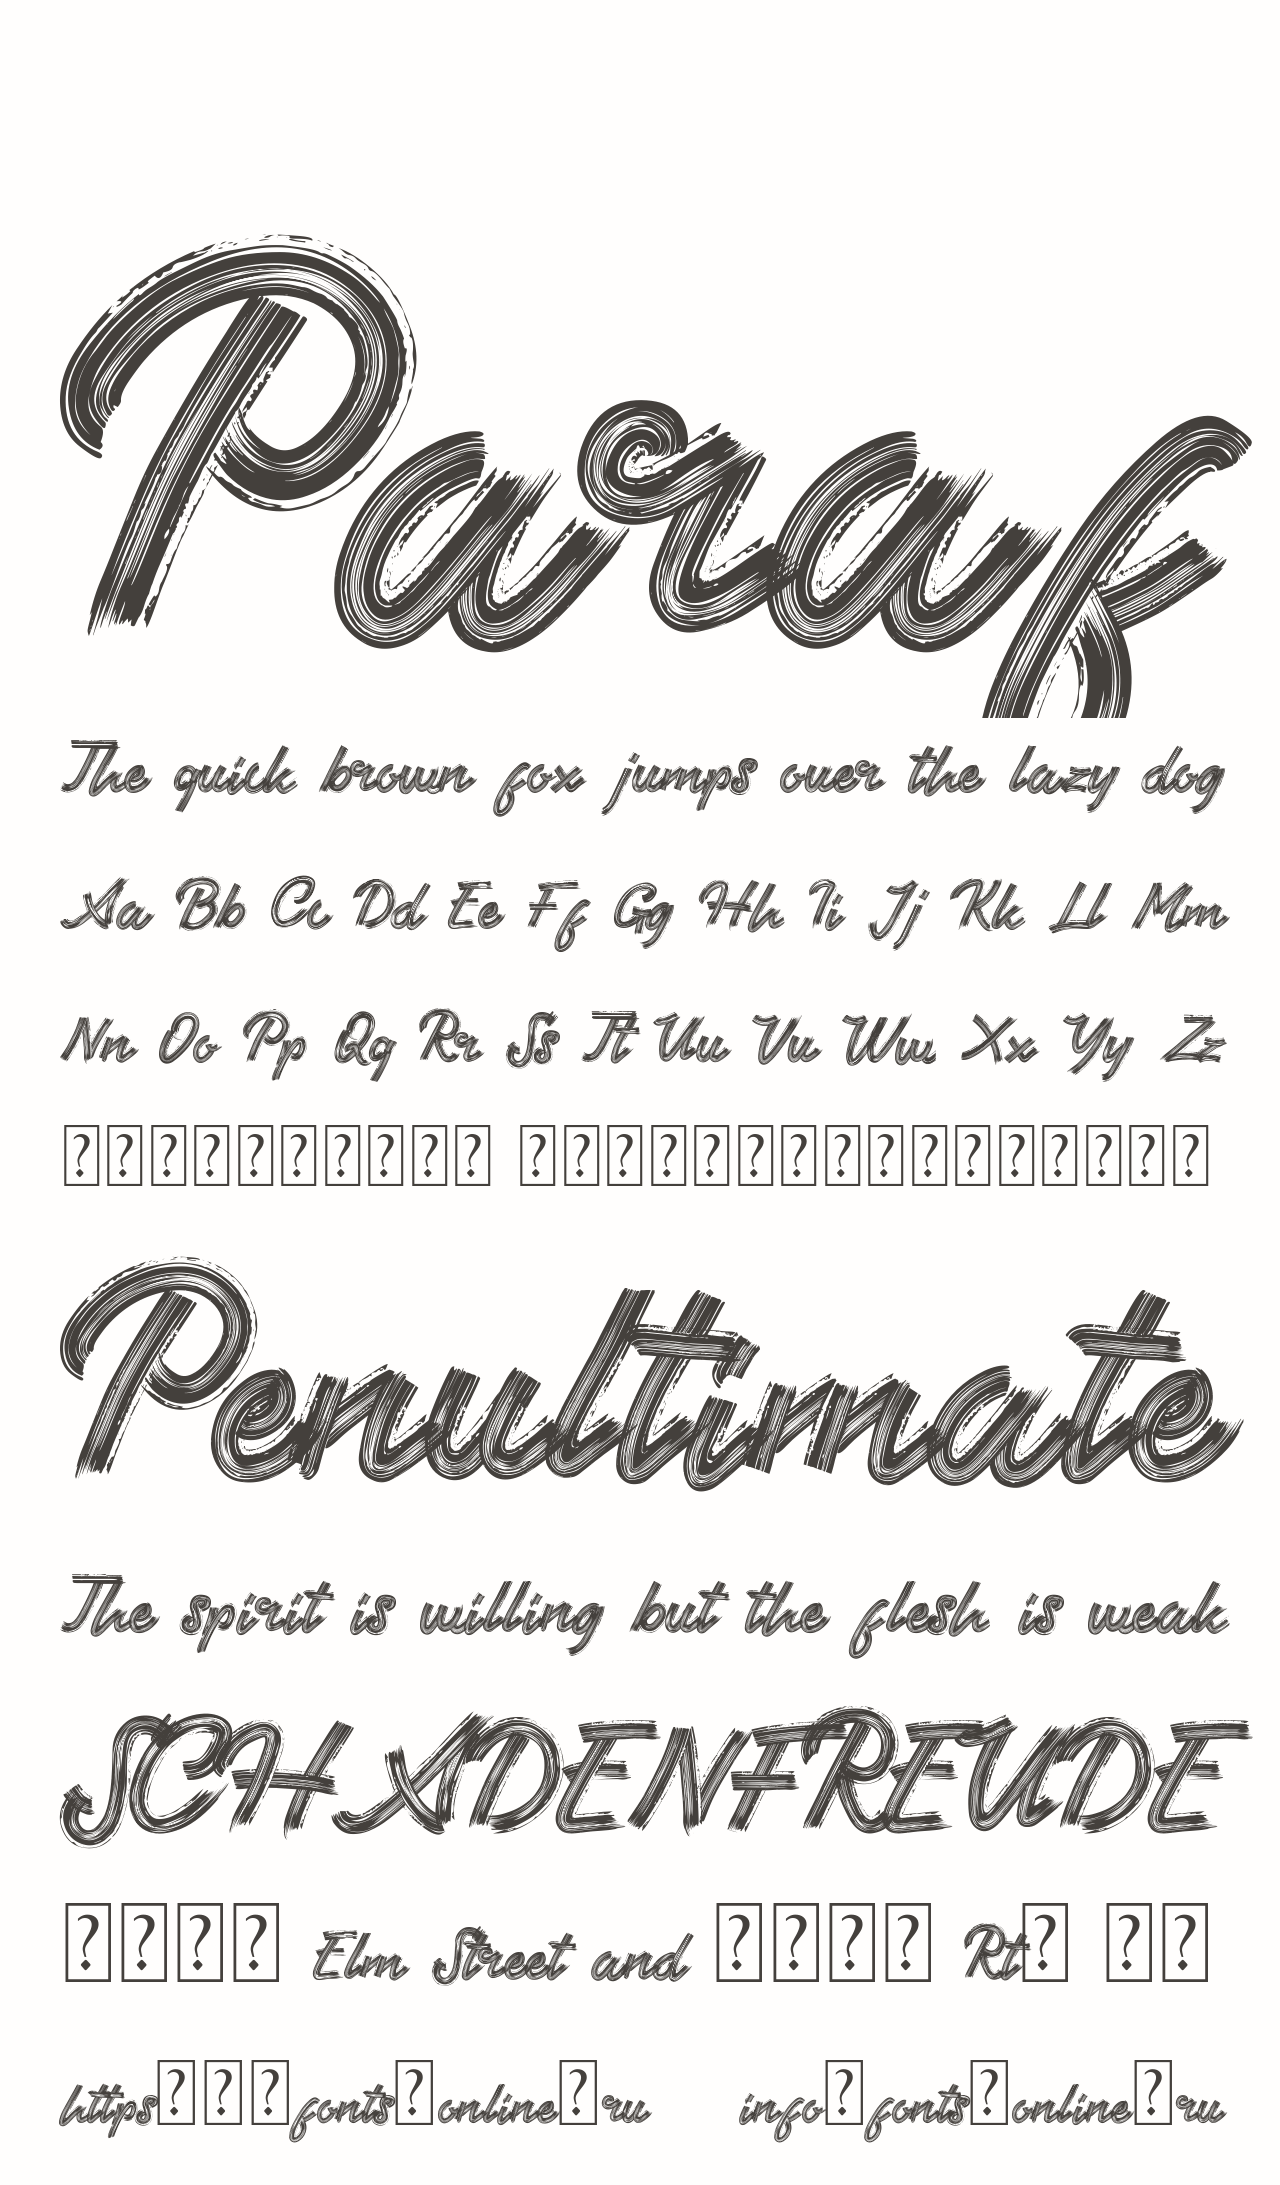 Paraf
The quick brown fox jumps over the lazy dog
Aa Bb Cc Dd Ee Ff Gg Hh Ii Jj Kk Ll Mm
Nn Oo Pp Qq Rr Ss Tt Uu Vv Ww Xx Yy Zz
Penultimate
The spirit is willing but the flesh is weak
SCHADENFREUDE
Elm Street and Rt
https fonts online ru info fonts online ru